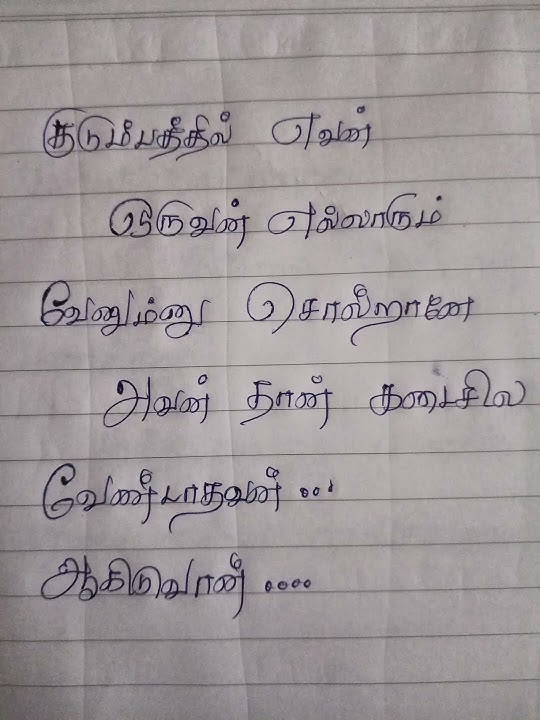 குடும்பத்தில் எவன்
ஒருவன் எல்லாரும்
வேணும்னு சொல்றானே
அவன் தான் கடைசில
வேண்டாதவன் ...
ஆகிடுவான் ....